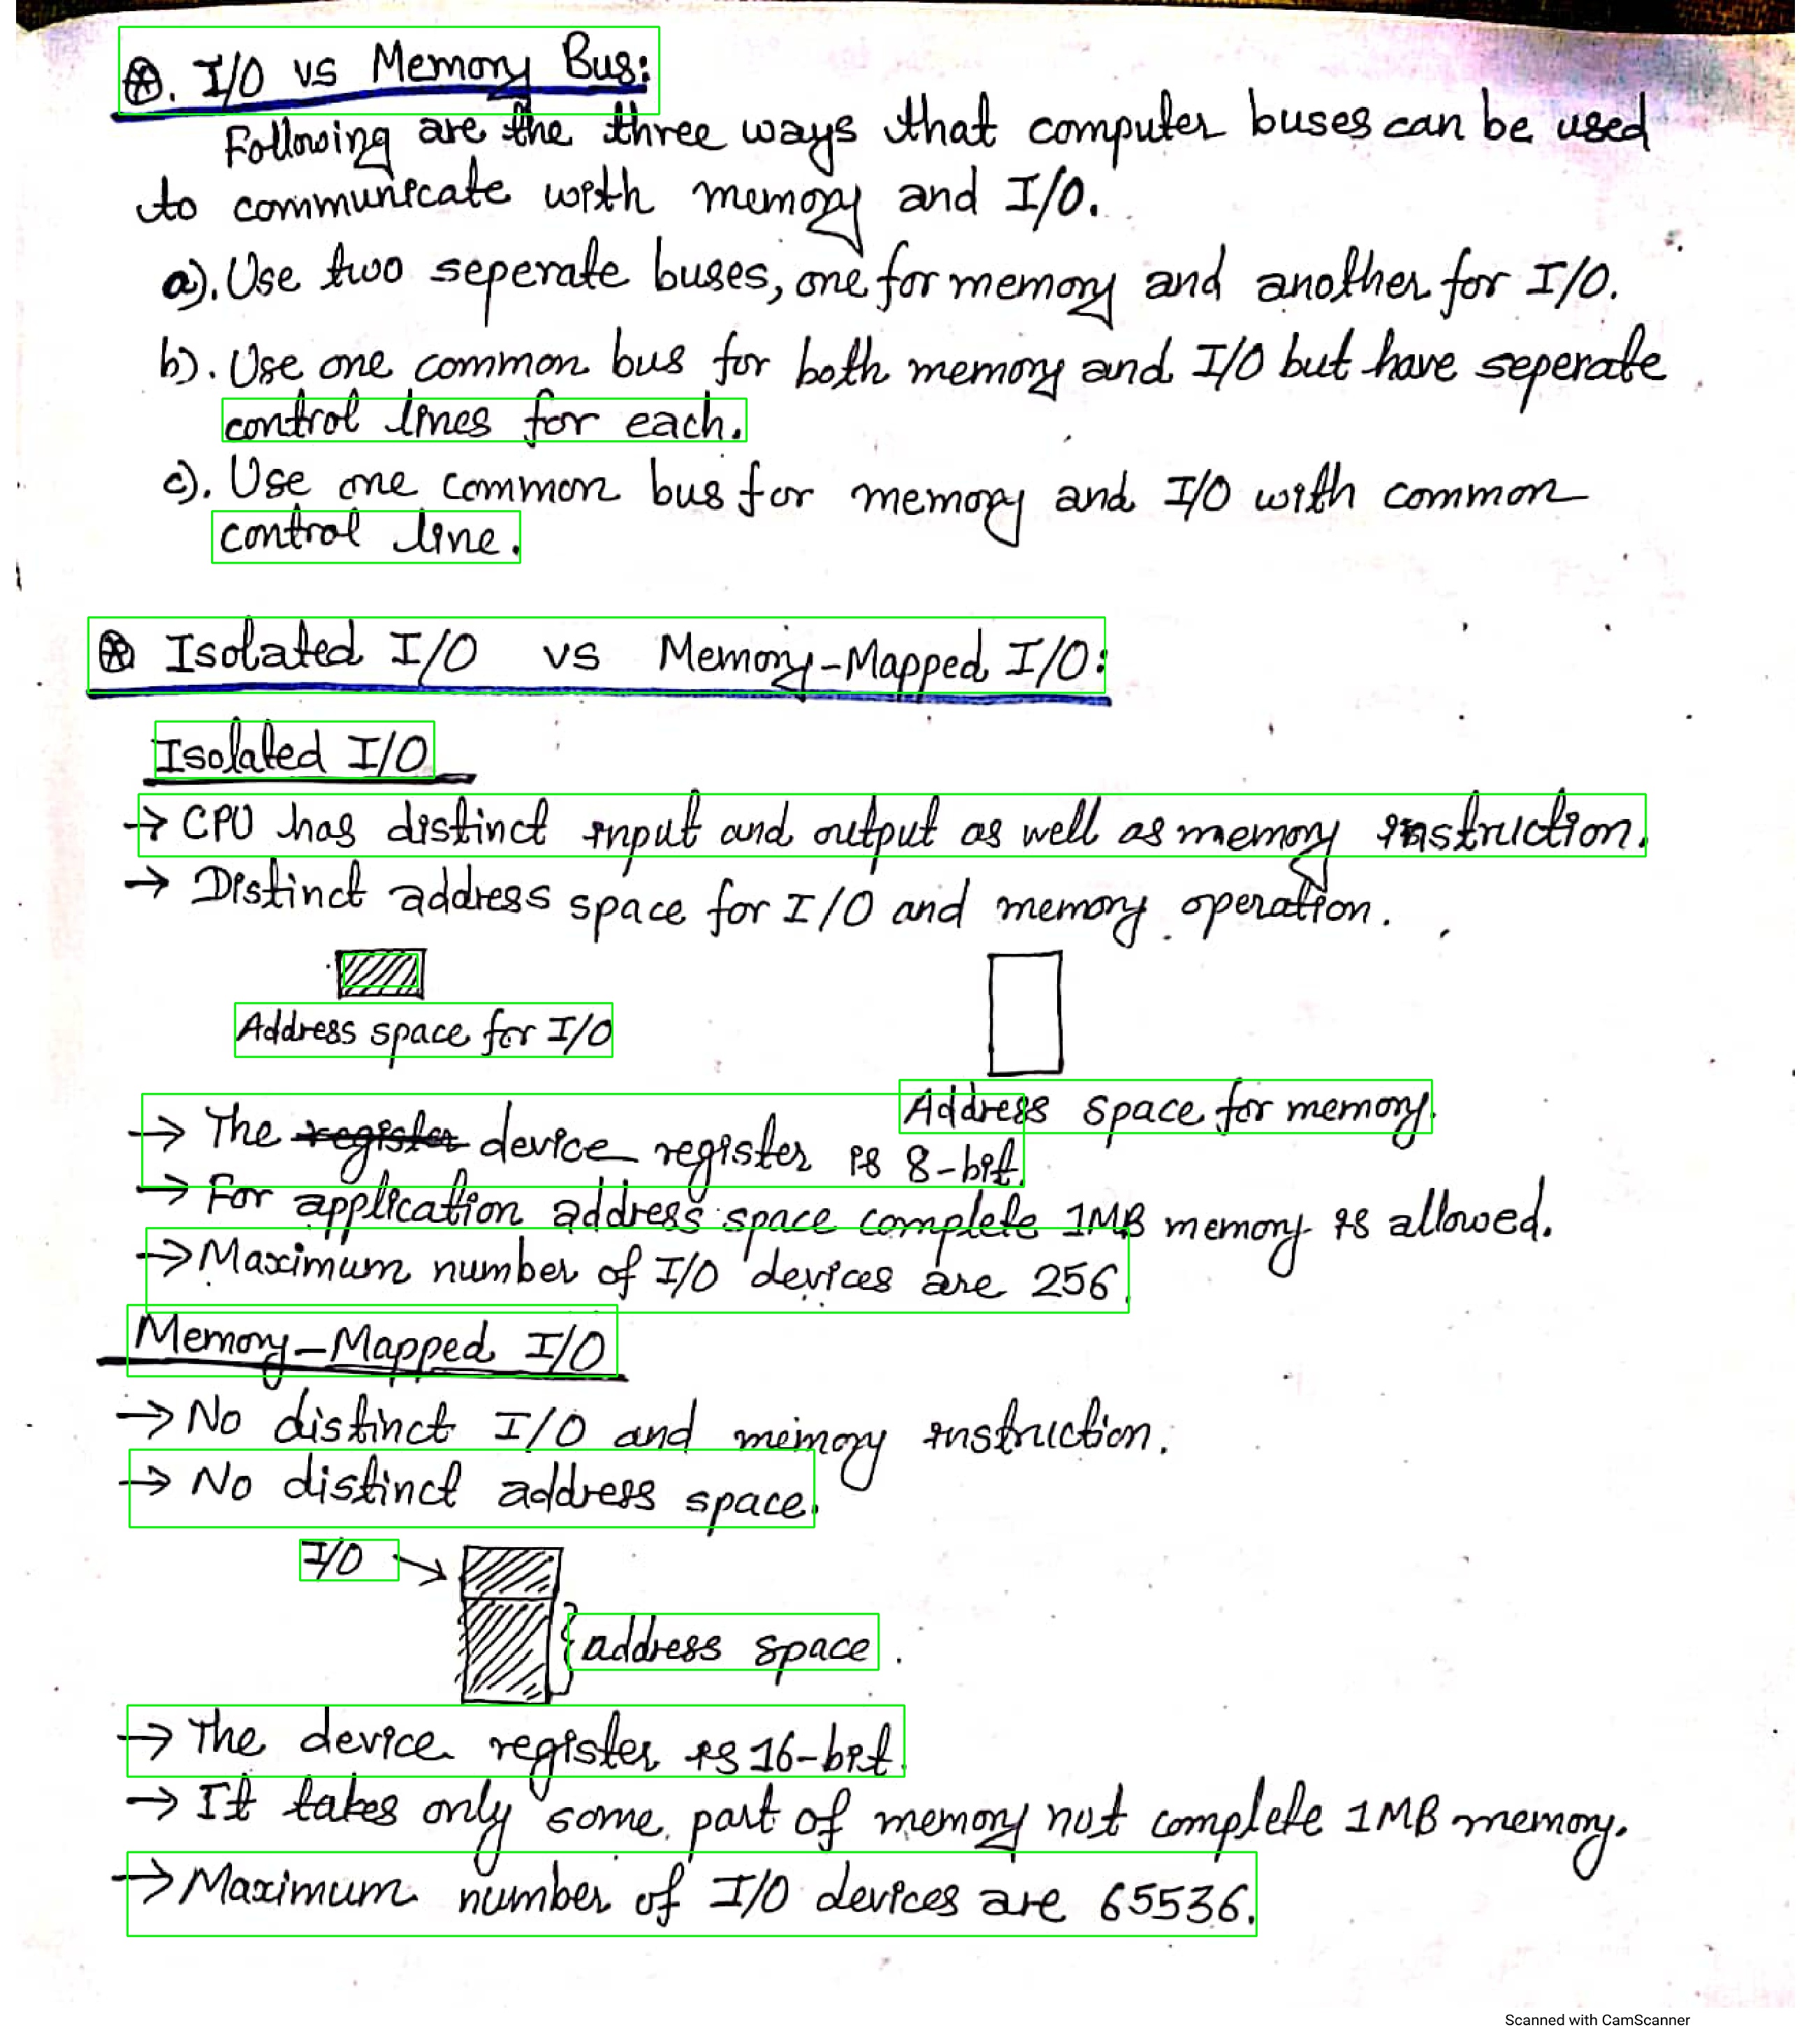 I/O vs Memory Bus:
Following are the three ways that computer buses can be used
to communicate with memory and I/O.
a). Use two seperate buses, one for memory and another for I/O.
b). Use one common bus for both memory and I/O but have seperate
control lines for each.
c). Use one common bus for memory and I/O with common
control line.
Isolated I/O vs Memory-Mapped I/O:
Isolated I/O
→ CPU has distinct input and output as well as memory instruction.
→ Distinct address space for I/O and memory operation.
Address space for I/O
Address space for memory.
→ The register device register is 8-bit.
→ For application address space complete 1MB memory is allowed.
→ Maximum number of I/O devices are 256.
Memory-Mapped I/O
→ No distinct I/O and memory instruction.
→ No distinct address space.
I/O
address space.
→ The device register is 16-bit.
→ It takes only some part of memory not complete 1MB memory.
→ Maximum number of I/O devices are 65536.
Scanned with CamScanner